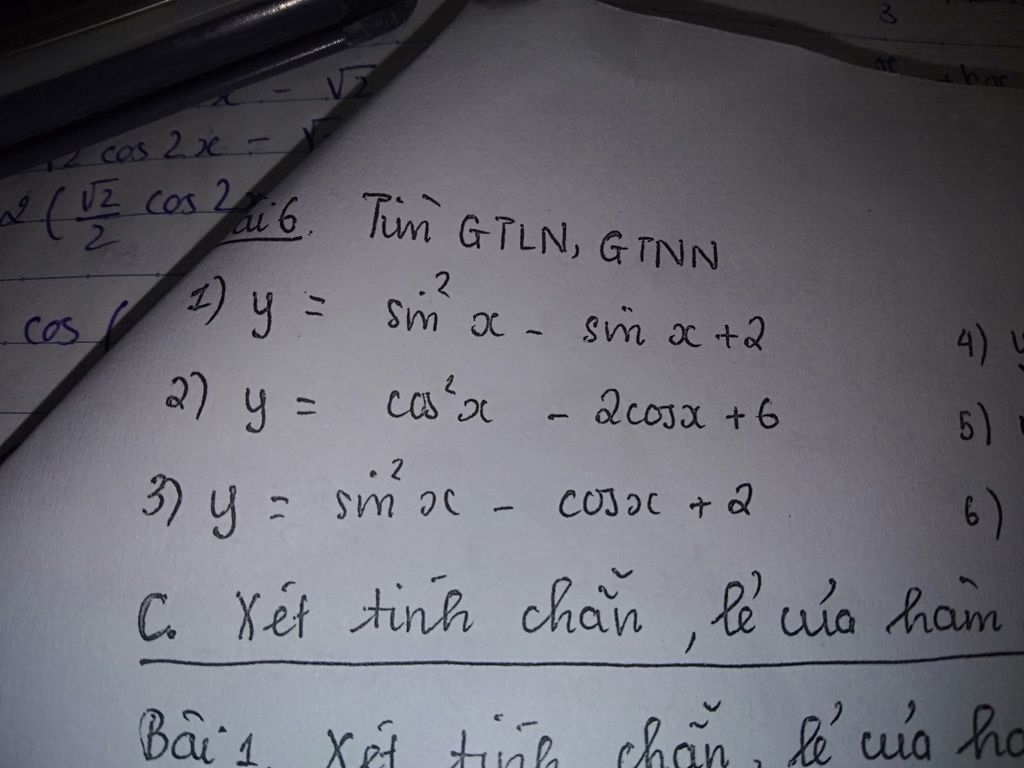 3
√2
2 cos 2x = √
2 ( √2/2 cos 2
cos (
ài 6. Tìm GTLN, GTNN
1) y = sin² x - sin x + 2
4)
2) y = cos² x - 2cosx + 6
5)
3) y = sin² x - cosx + 2
6)
C. Xét tính chẵn, lẻ của hàm
Bài 1. Xét tính chẵn, lẻ của